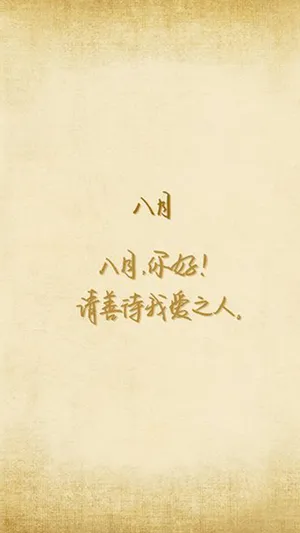 八月
八月,你好!
请善待我爱之人.